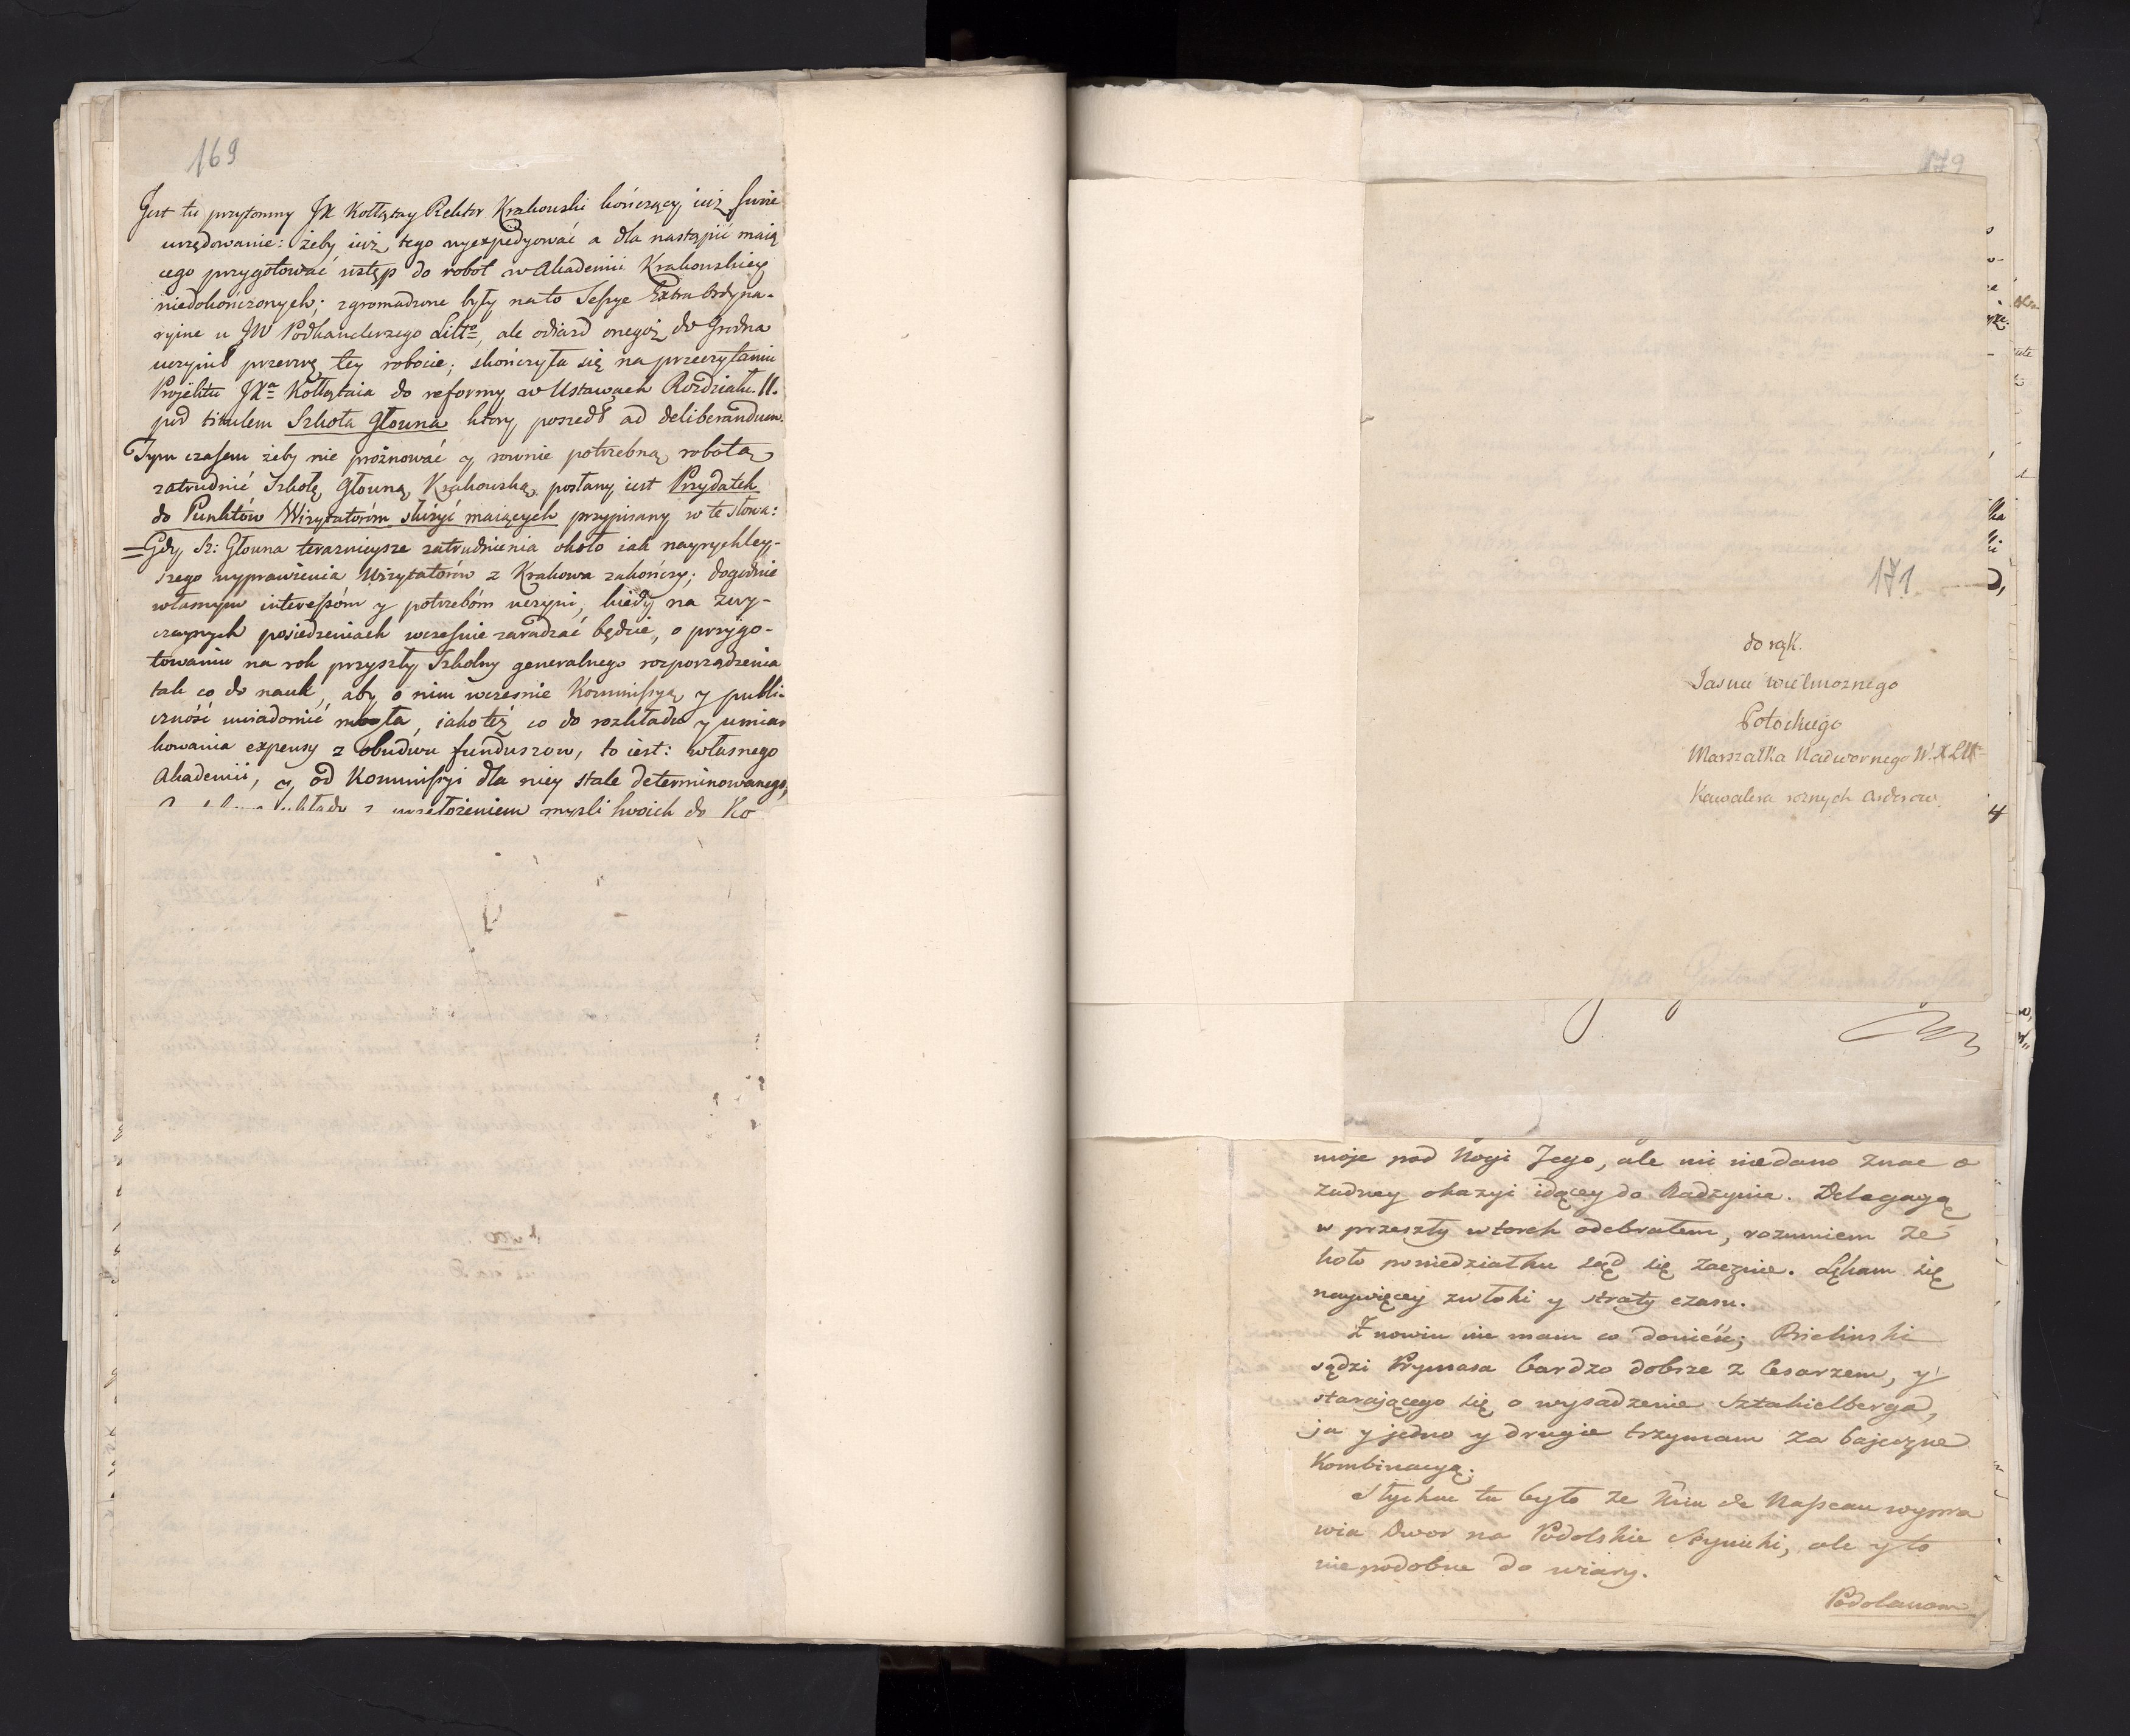 169
Jest tu przytomny JX Kołłątay Rektor Krakowski kończący iuż swoie
urzędowanie: żeby iuż tego wyexpedyować a dla nastąpić maią
cego przygotować wstęp do robot w Akademii Krakowskiey
niedokończonych; zgromadzone były na to Sessye Extraordyna-
ryine u JW Podkanclerzego Litto, ale odiazd onegoż do Grodna
uczynił przerwę tey robocie; skończyła się na przeczytaniu
Projektu JXa Kołłątaia do reformy w Ustawach Rozdziału. II.
pod titulem Szkoła Głowna który poszedł ad deliberandum.
Tym czasem żeby nie próżnować y rownie potrzebną robotą
zatrudnić Szkołę Głowną Krakowską posłany iest Przydatek
do Punktów Wizytatoróm służyć maiących przypisany w te słowa:
=Gdy Sz: Głowna terazniejsze zatrudnienia około iak nayrychley-
szego wyprawienia Wizytatorów z Krakowa zakończy; dogodnie
własnym interessóm y potrzebóm uczyni, kiedy na zwy-
czaynych posiedzeniach wcześnie zaradzać będzie, o przygo-
towaniu na rok przyszły Szkolny generalnego rozporządzenia
tak co do nauk, aby o nim wczesnie Kommissyą y publi-
czność uwiadomić mogła, iako też co do rozkładu y umiar
kowania expensy z obudwu funduszow, to iest: własnego
Akademii, y od Kommissyi dla niey stale determinowanego,
z przełożeniem mysli swoich do Ko
179
171
do rąk.
Jasnie wielmoznego
Potockiego
Marszałka Nadwornego W. X Litt
Kawalera roznych orderow
moje pod Nogi Jego, ale mi niedano znac o
żadney okazyi idącey do Radzynia. Delagacyą
w przeszły wtorek odebrałem, rozumiem że
koło poniedziałku sąd się zacznie. Lękam się
naywięcey zwłoki y straty czasu.
Z nowin nie mam co donieść; Bielinski
sądzi Prymasa bardzo dobrze z Cesarzem, y
starającego się o wysadzenie Sztakielberga,
ja y jedno y drugie trzymam za bajeczne
Kombinacyą.
Słychac tu było ze de Nassau wypra
wia Dwor na Podolskie Seymiki, ale y to
niepodobne do wiary.
Podolanom